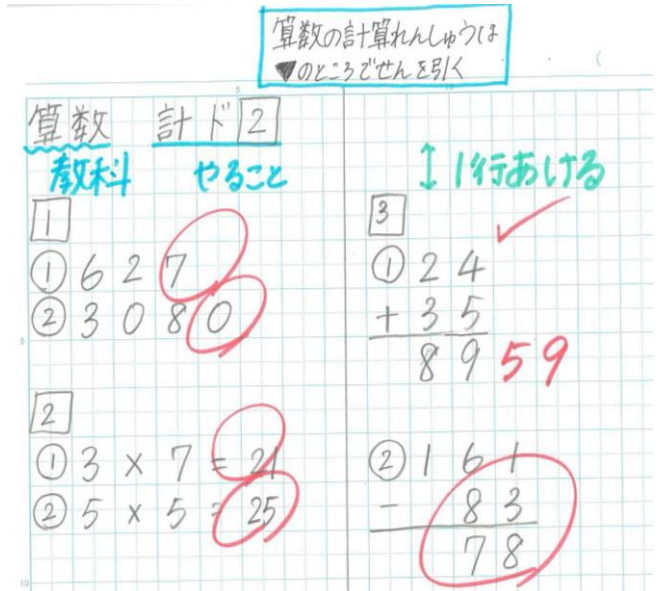 算数の計算れんしゅうは
▼のところでせんを引く
算数 計ド2
教科 やること
1
①627
②3080
2
①3×7=21
②5×5=25
↕1行あける
3
①24
+35
89 59
②161
-83
78
5
10
5
10